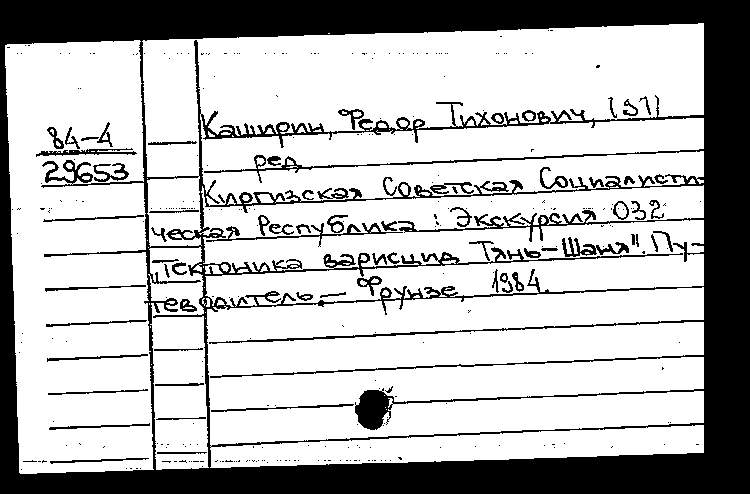 84-4
29653
Каширин, Федор Тихонович, (57)
ред.
Киргизская Советская Социалисти-
ческая Республика : Экскурсия 032
„Тектоника варисцид Тянь-Шаня". Пу-
теводитель. — Фрунзе, 1984.